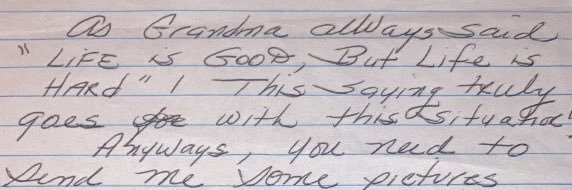 As Grandma allways said
"LiFE is GOOD, But Life is
HARd" ! This saying truly
goes with this situation!
Anyways, you need to
send me some pictures